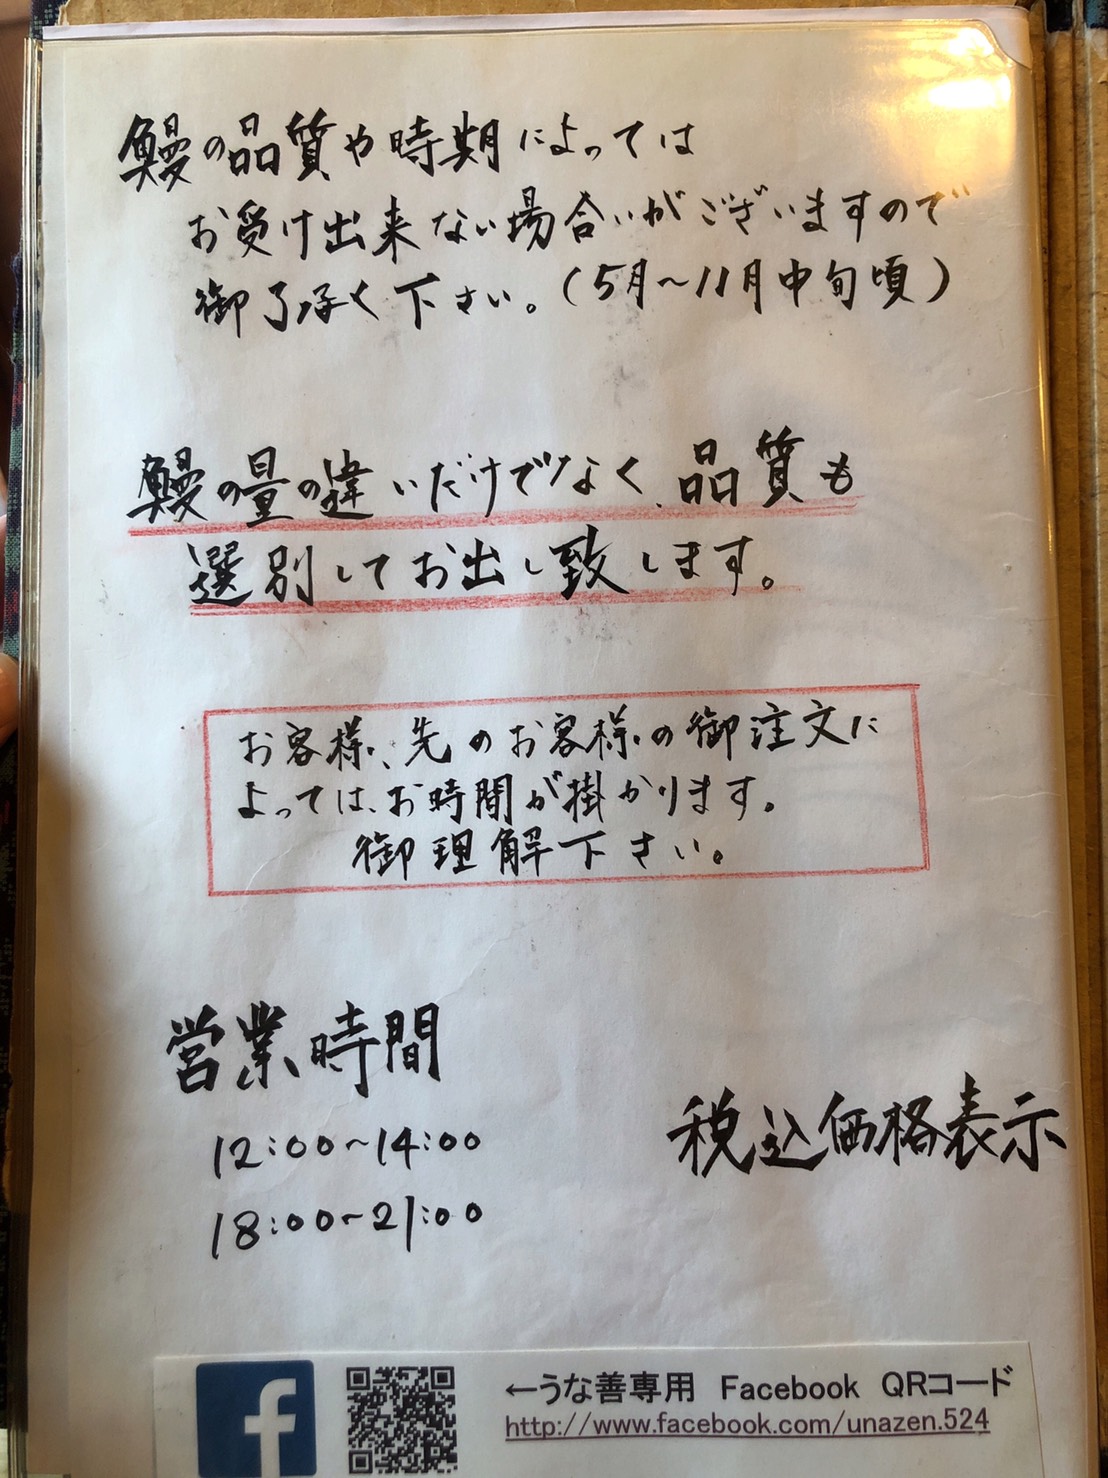 鰻の品質や時期によっては
お受け出来ない場合いがございますので
御了承く下さい。(5月〜11月中旬頃)
鰻の量の違いだけでなく、品質も
選別してお出し致します。
お客様、先のお客様の御注文に
よっては、お時間が掛かります。
御理解下さい。
営業時間
12:00〜14:00
18:00〜21:00
税込価格表示
←うな善専用 Facebook QRコード
http://www.facebook.com/unazen.524